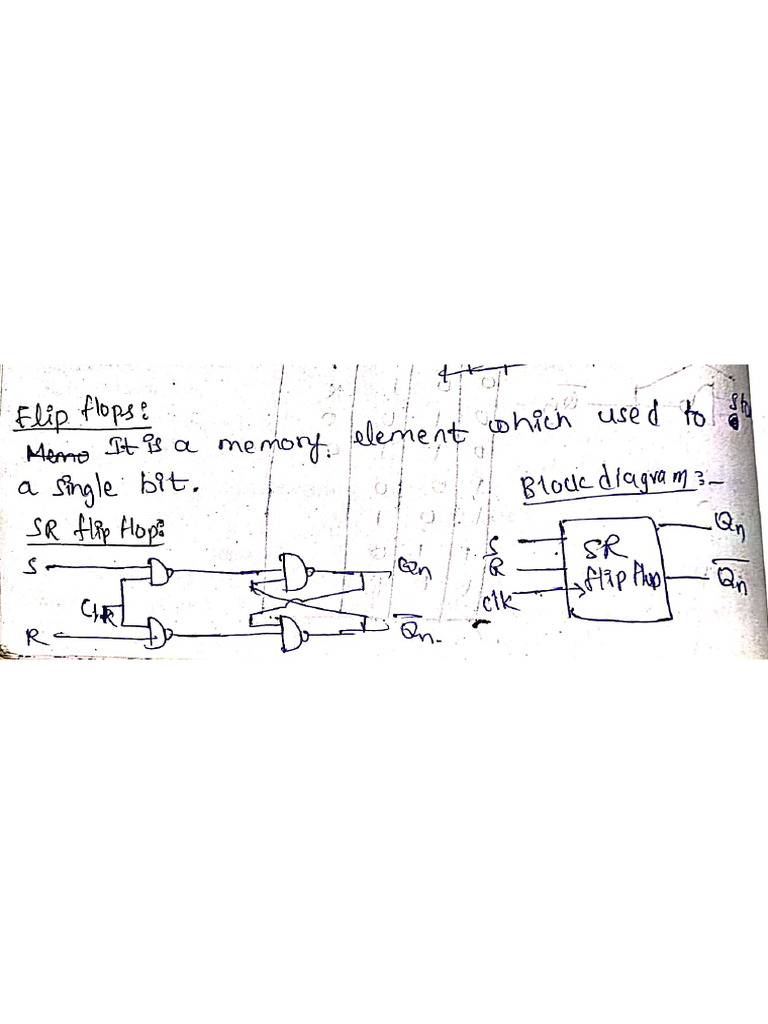 Flip flops:
Memo It is a memory element which used to
a single bit.
Block diagram:-
SR flip flop:
S
Clk
R
Qn
Qn
S
R
clk
SR
flip flop
Qn
Qn